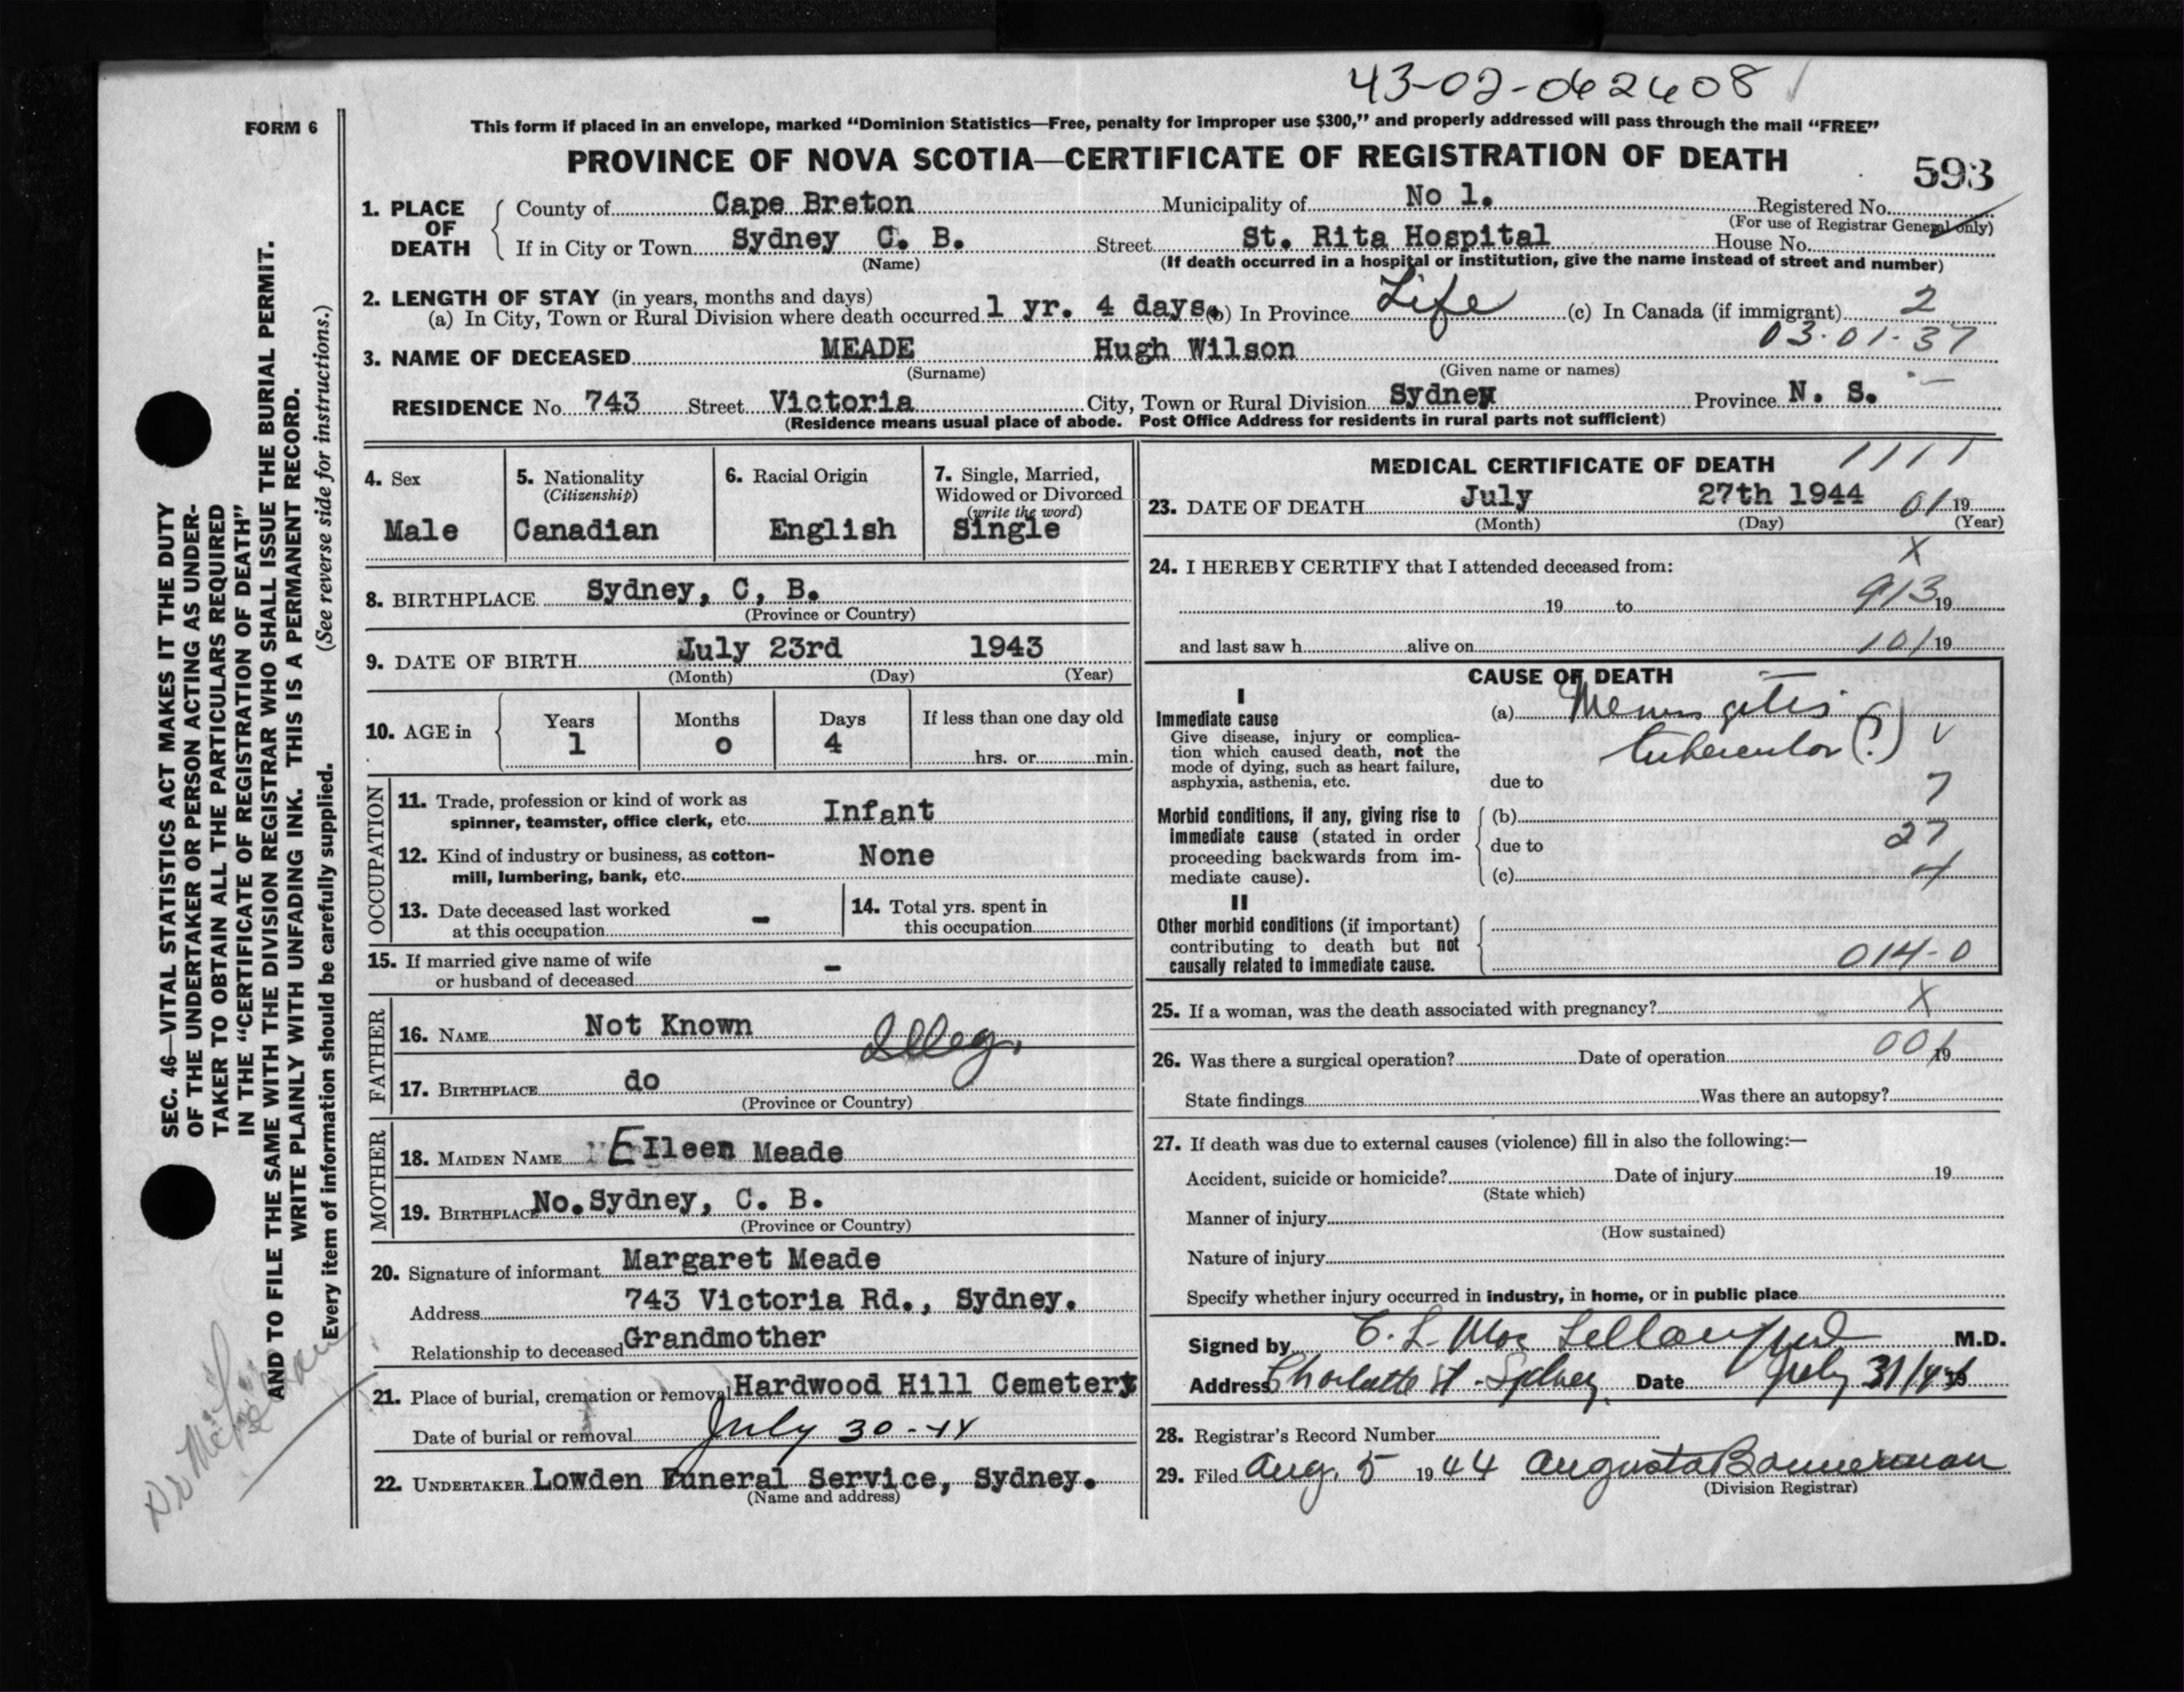 43-02-062608
FORM 6
This form if placed in an envelope, marked "Dominion Statistics—Free, penalty for improper use $300," and properly addressed will pass through the mail "FREE"
PROVINCE OF NOVA SCOTIA—CERTIFICATE OF REGISTRATION OF DEATH
593
1. PLACE OF DEATH
County of Cape Breton Municipality of No 1. Registered No.
(For use of Registrar General only)
If in City or Town Sydney C. B. Street St. Rita Hospital House No.
(Name) (If death occurred in a hospital or institution, give the name instead of street and number)
2. LENGTH OF STAY (in years, months and days)
(a) In City, Town or Rural Division where death occurred 1 yr. 4 days. (b) In Province Life (c) In Canada (if immigrant) 2
03-01-37
3. NAME OF DECEASED MEADE Hugh Wilson
(Surname) (Given name or names)
RESIDENCE No. 743 Street Victoria City, Town or Rural Division Sydney Province N. S.
(Residence means usual place of abode. Post Office Address for residents in rural parts not sufficient)
4. Sex
Male
5. Nationality
(Citizenship)
Canadian
6. Racial Origin
English
7. Single, Married,
Widowed or Divorced
(write the word)
Single
8. BIRTHPLACE Sydney, C, B.
(Province or Country)
9. DATE OF BIRTH July 23rd 1943
(Month) (Day) (Year)
10. AGE in
Years Months Days If less than one day old
1 0 4 hrs. or min.
OCCUPATION
11. Trade, profession or kind of work as
spinner, teamster, office clerk, etc. Infant
12. Kind of industry or business, as cotton-
mill, lumbering, bank, etc. None
13. Date deceased last worked
at this occupation -
14. Total yrs. spent in
this occupation
15. If married give name of wife
or husband of deceased -
FATHER
16. NAME Not Known Illeg.
17. BIRTHPLACE do
(Province or Country)
MOTHER
18. MAIDEN NAME EIleen Meade
19. BIRTHPLACE No. Sydney, C. B.
(Province or Country)
20. Signature of informant Margaret Meade
Address 743 Victoria Rd., Sydney.
Relationship to deceased Grandmother
21. Place of burial, cremation or removal Hardwood Hill Cemetery
Date of burial or removal July 30-44
22. UNDERTAKER Lowden Funeral Service, Sydney.
(Name and address)
MEDICAL CERTIFICATE OF DEATH 1111
23. DATE OF DEATH July 27th 1944 01 19
(Month) (Day) (Year)
X
24. I HEREBY CERTIFY that I attended deceased from:
19 to 913 19
and last saw h alive on 101 19
CAUSE OF DEATH
I
Immediate cause
Give disease, injury or complica-
tion which caused death, not the
mode of dying, such as heart failure,
asphyxia, asthenia, etc.
(a) Meningitis
tubercular (?) v
due to 7
Morbid conditions, if any, giving rise to
immediate cause (stated in order
proceeding backwards from im-
mediate cause).
(b)
due to 27
(c) 4
II
Other morbid conditions (if important)
contributing to death but not
causally related to immediate cause.
014-0
25. If a woman, was the death associated with pregnancy? X
26. Was there a surgical operation? Date of operation 001 19
State findings Was there an autopsy?
27. If death was due to external causes (violence) fill in also the following:—
Accident, suicide or homicide? Date of injury 19
(State which)
Manner of injury
(How sustained)
Nature of injury
Specify whether injury occurred in industry, in home, or in public place
Signed by C. L. MacLellan M.D.
Address Charlotte St. Sydney Date July 31/44 19
28. Registrar's Record Number
29. Filed Aug. 5 1944 Augusta Bannerman
(Division Registrar)
SEC. 46—VITAL STATISTICS ACT MAKES IT THE DUTY
OF THE UNDERTAKER OR PERSON ACTING AS UNDER-
TAKER TO OBTAIN ALL THE PARTICULARS REQUIRED
IN THE "CERTIFICATE OF REGISTRATION OF DEATH"
AND TO FILE THE SAME WITH THE DIVISION REGISTRAR WHO SHALL ISSUE THE BURIAL PERMIT.
WRITE PLAINLY WITH UNFADING INK. THIS IS A PERMANENT RECORD.
Every item of information should be carefully supplied. (See reverse side for instructions.)